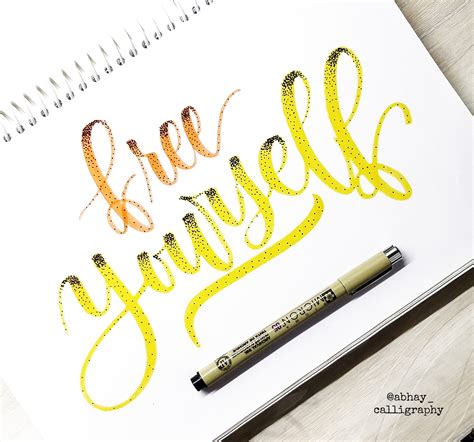 free
yourself
MICRON
@abhay_
calligraphy